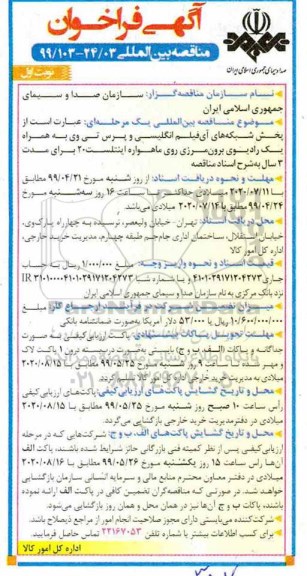 آگهی فراخوان
مناقصه بین المللی ۹۹/۱۰۳-۲۴/۰۳
نوبت اول
صدا و سیمای جمهوری اسلامی ایران
نام سازمان مناقصه گزار: سازمان صدا و سیمای
جمهوری اسلامی ایران
موضوع مناقصه بین‌المللی یک مرحله‌ای: عبارت است از
پخش شبکه‌های آی‌فیلم انگلیسی و پرس تی وی به همراه
یک رادیوی برون‌مرزی روی ماهواره اینتلست۲۰ برای مدت
۳ سال به‌شرح اسناد مناقصه
مهلت و نحوه دریافت اسناد: از روز شنبه مورخ ۹۹/۰۴/۲۱
۲۰۲۰/۰۷/۱۱ میلادی حداکثر تا ساعت ۱۶ روز سه‌شنبه مورخ
۹۹/۰۴/۲۴ مطابق با ۲۰۲۰/۰۷/۱۴ میلادی می‌باشد
محل دریافت اسناد: تهران- خیابان ولیعصر، نرسیده به چهارراه پارک‌وی،
خیابان استقلال، ساختمان اداری جام‌جم طبقه چهارم، مدیریت خرید خارجی،
اداره کل امور کالا
قیمت اسناد و نحوه واریز وجه: ۱/۰۰۰/۰۰۰ ریال
جاری ۴۱۰۱۰۲۹۱۷۱۲۰۴۲۷۳ و یا شماره شبا IR
نزد بانک مرکزی به نام سازمان صدا و سیمای جمهوری اسلامی ایران
مبلغ
۱۰/۶۰۰/۰۰۰/۰۰۰ ریال یا ۵۳/۰۰۰ دلار آمریکا به‌صورت ضمانتنامه بانکی
مهلت تحویل پاکات پیشنهادی: پاکت ارزیابی کیفی به صورت
جداگانه و پاکات (الف و ب و ج)
و مهر شده تا ساعت ۹ روز شنبه مورخ ۹۹/۰۵/۲۵ مطابق با ۲۰۲۰/۰۸/۱۵
میلادی به مدیریت خرید خارجی
محل و تاریخ گشایش پاکت‌های ارزیابی کیفی: پاکت‌های ارزیابی کیفی
رأس ساعت ۱۰ صبح روز شنبه مورخ ۹۹/۰۵/۲۵ مطابق با ۲۰۲۰/۰۸/۱۵
میلادی در دفتر مدیریت خرید خارجی بازگشایی می‌گردد.
محل و تاریخ گشایش پاکت‌های الف، ب و ج: شرکت‌هایی که در مرحله
ارزیابی کیفی پس از نظر کمیته فنی بازرگانی حائز شرایط شده باشند، پاکت الف
آن‌ها رأس ساعت ۱۵ روز یکشنبه مورخ ۹۹/۰۵/۲۶ مطابق با ۲۰۲۰/۰۸/۱۶
میلادی در دفتر معاون محترم منابع مالی و سرمایه انسانی سازمان بازگشایی
خواهد شد. در صورتی که مناقصه‌گران تضمین کافی در پاکت الف ارائه نموده
باشند، پاکات ب و ج آن‌ها نیز در همان محل و همان روز بازگشایی می‌شود.
شرکت‌کننده می‌بایستی دارای مجوز صلاحیت انجام امور از مراجع ذیصلاح باشد.
برای کسب اطلاعات بیشتر با شماره تلفن ۲۲۱۶۷۰۵۳ تماس حاصل فرمایید.
اداره کل امور کالا